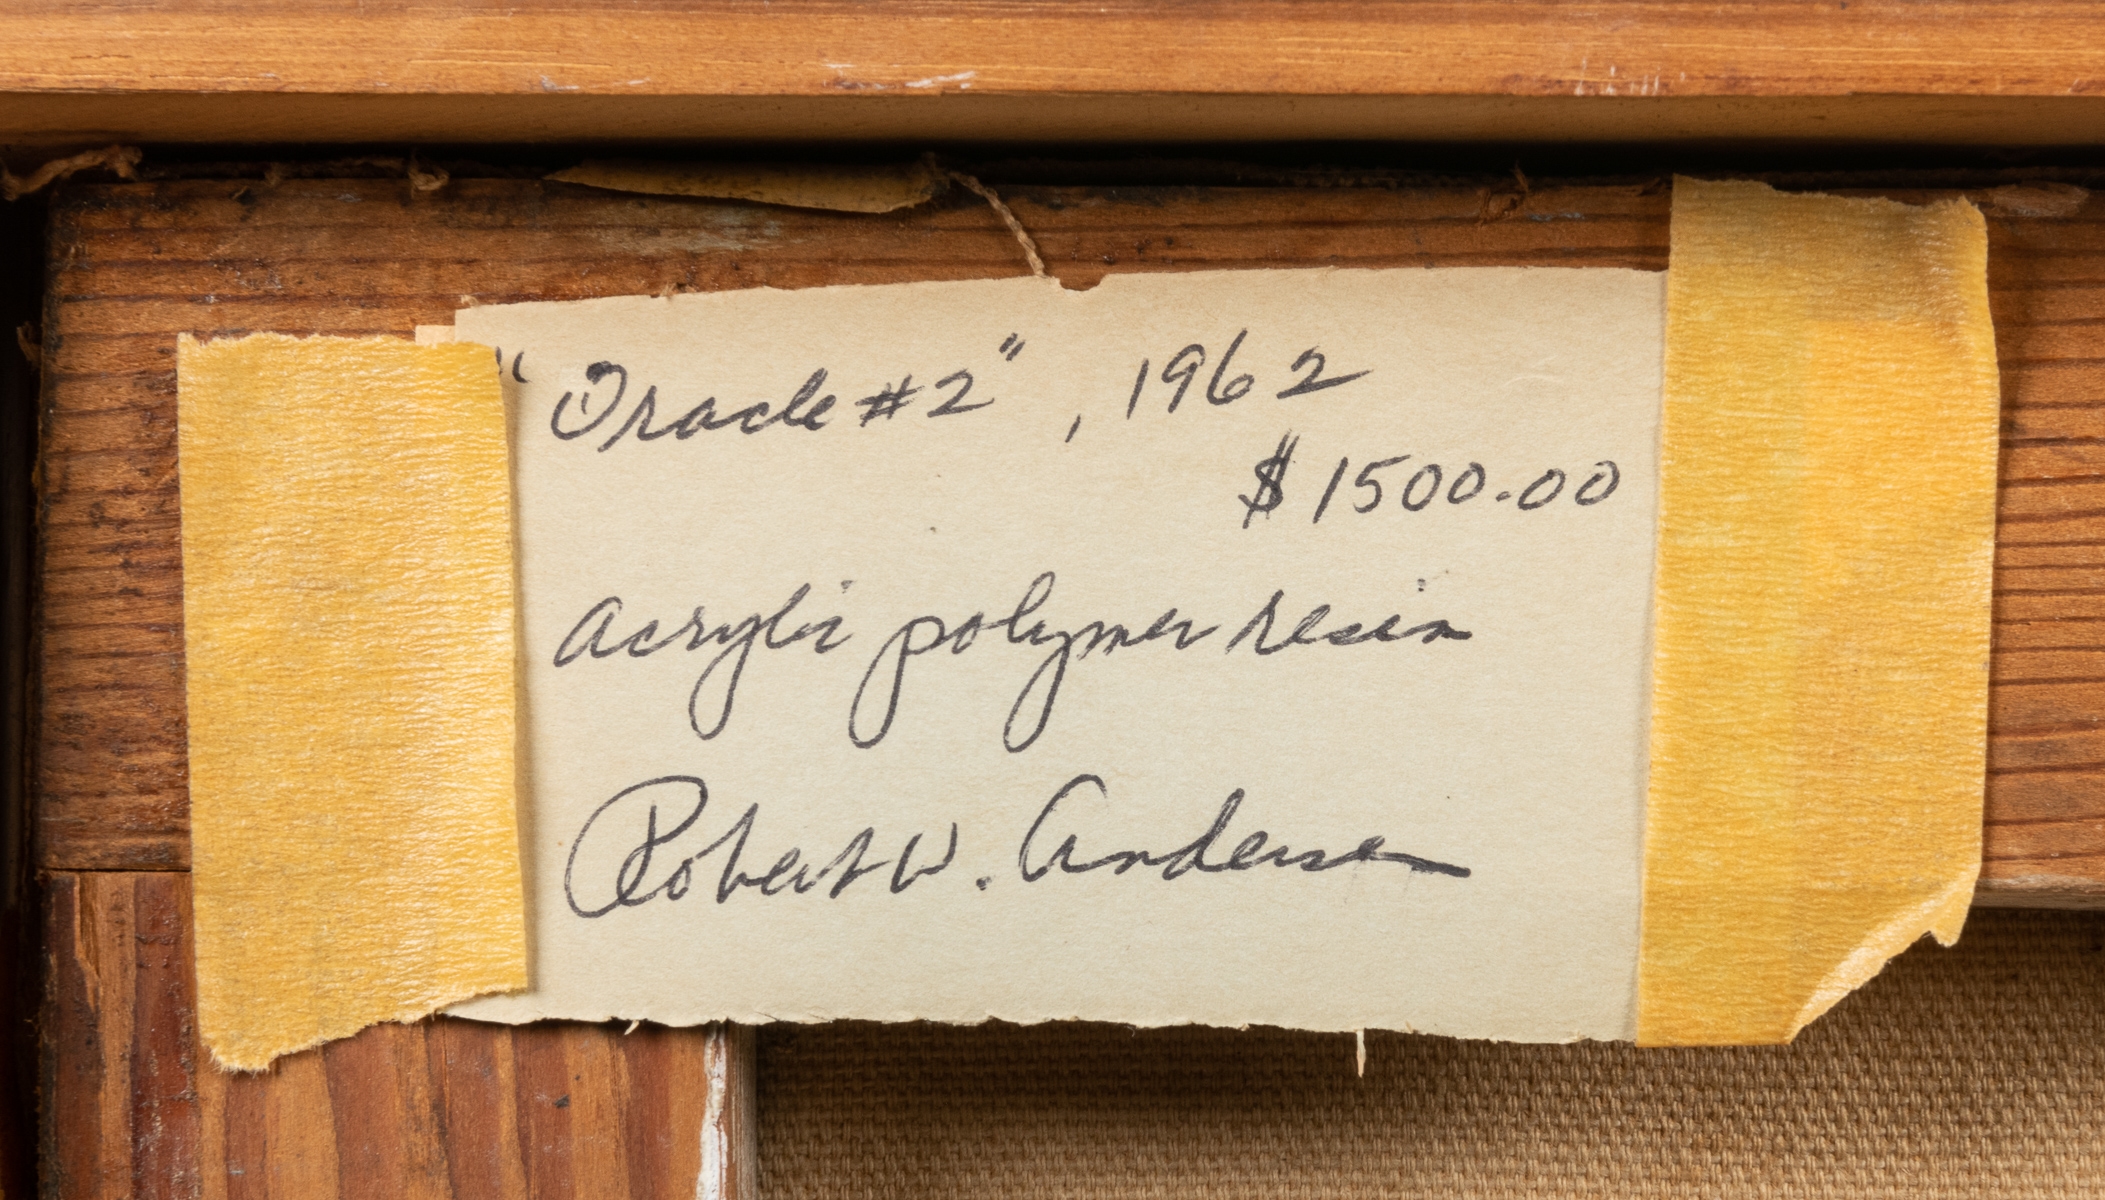 "Oracle #2", 1962
$1500.00
acrylic polymer resin
Robert W. Andersen